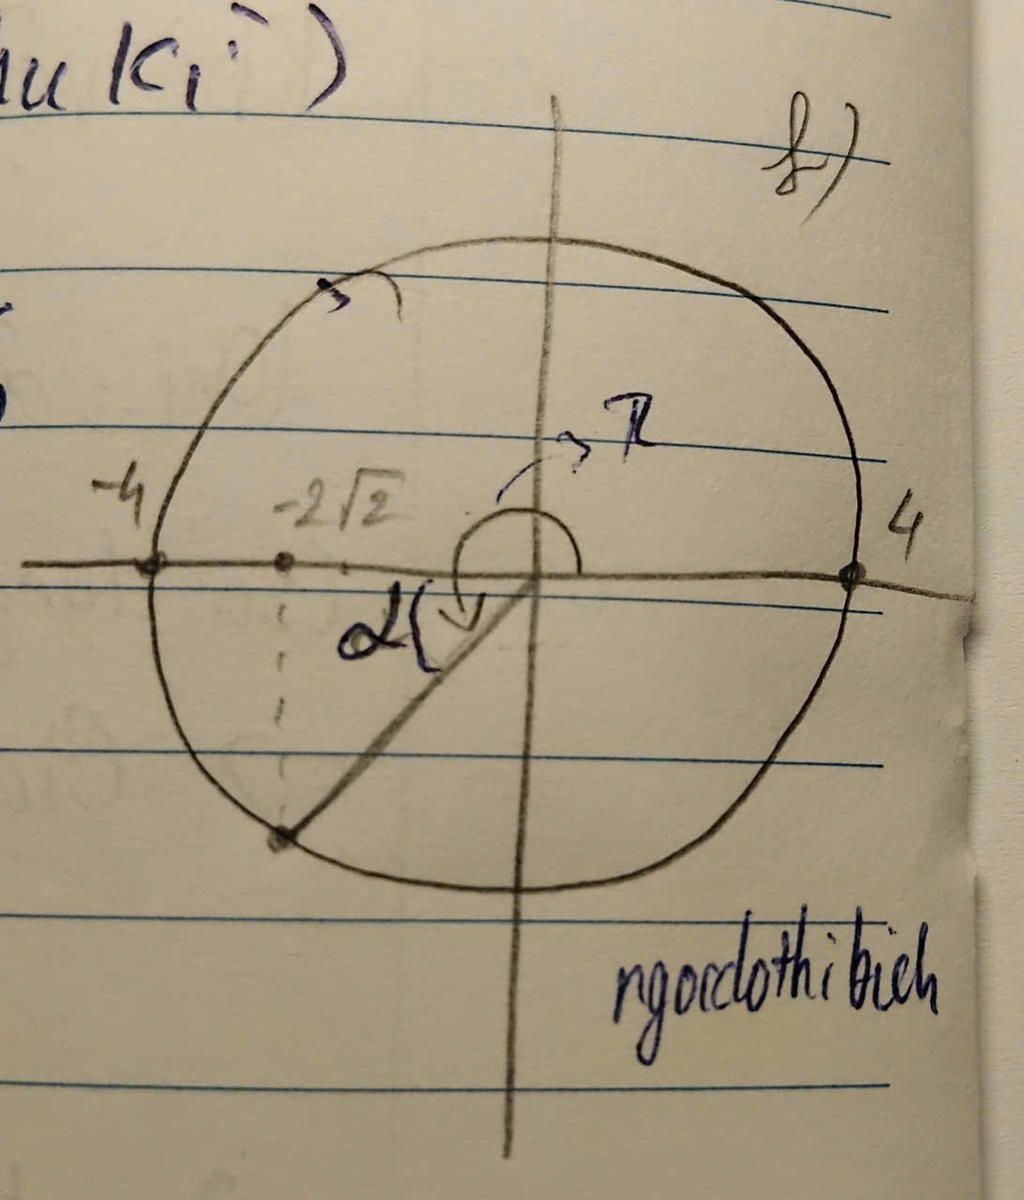 kì)
f)
π
-4
-2√2
4
α
ngocdothibich